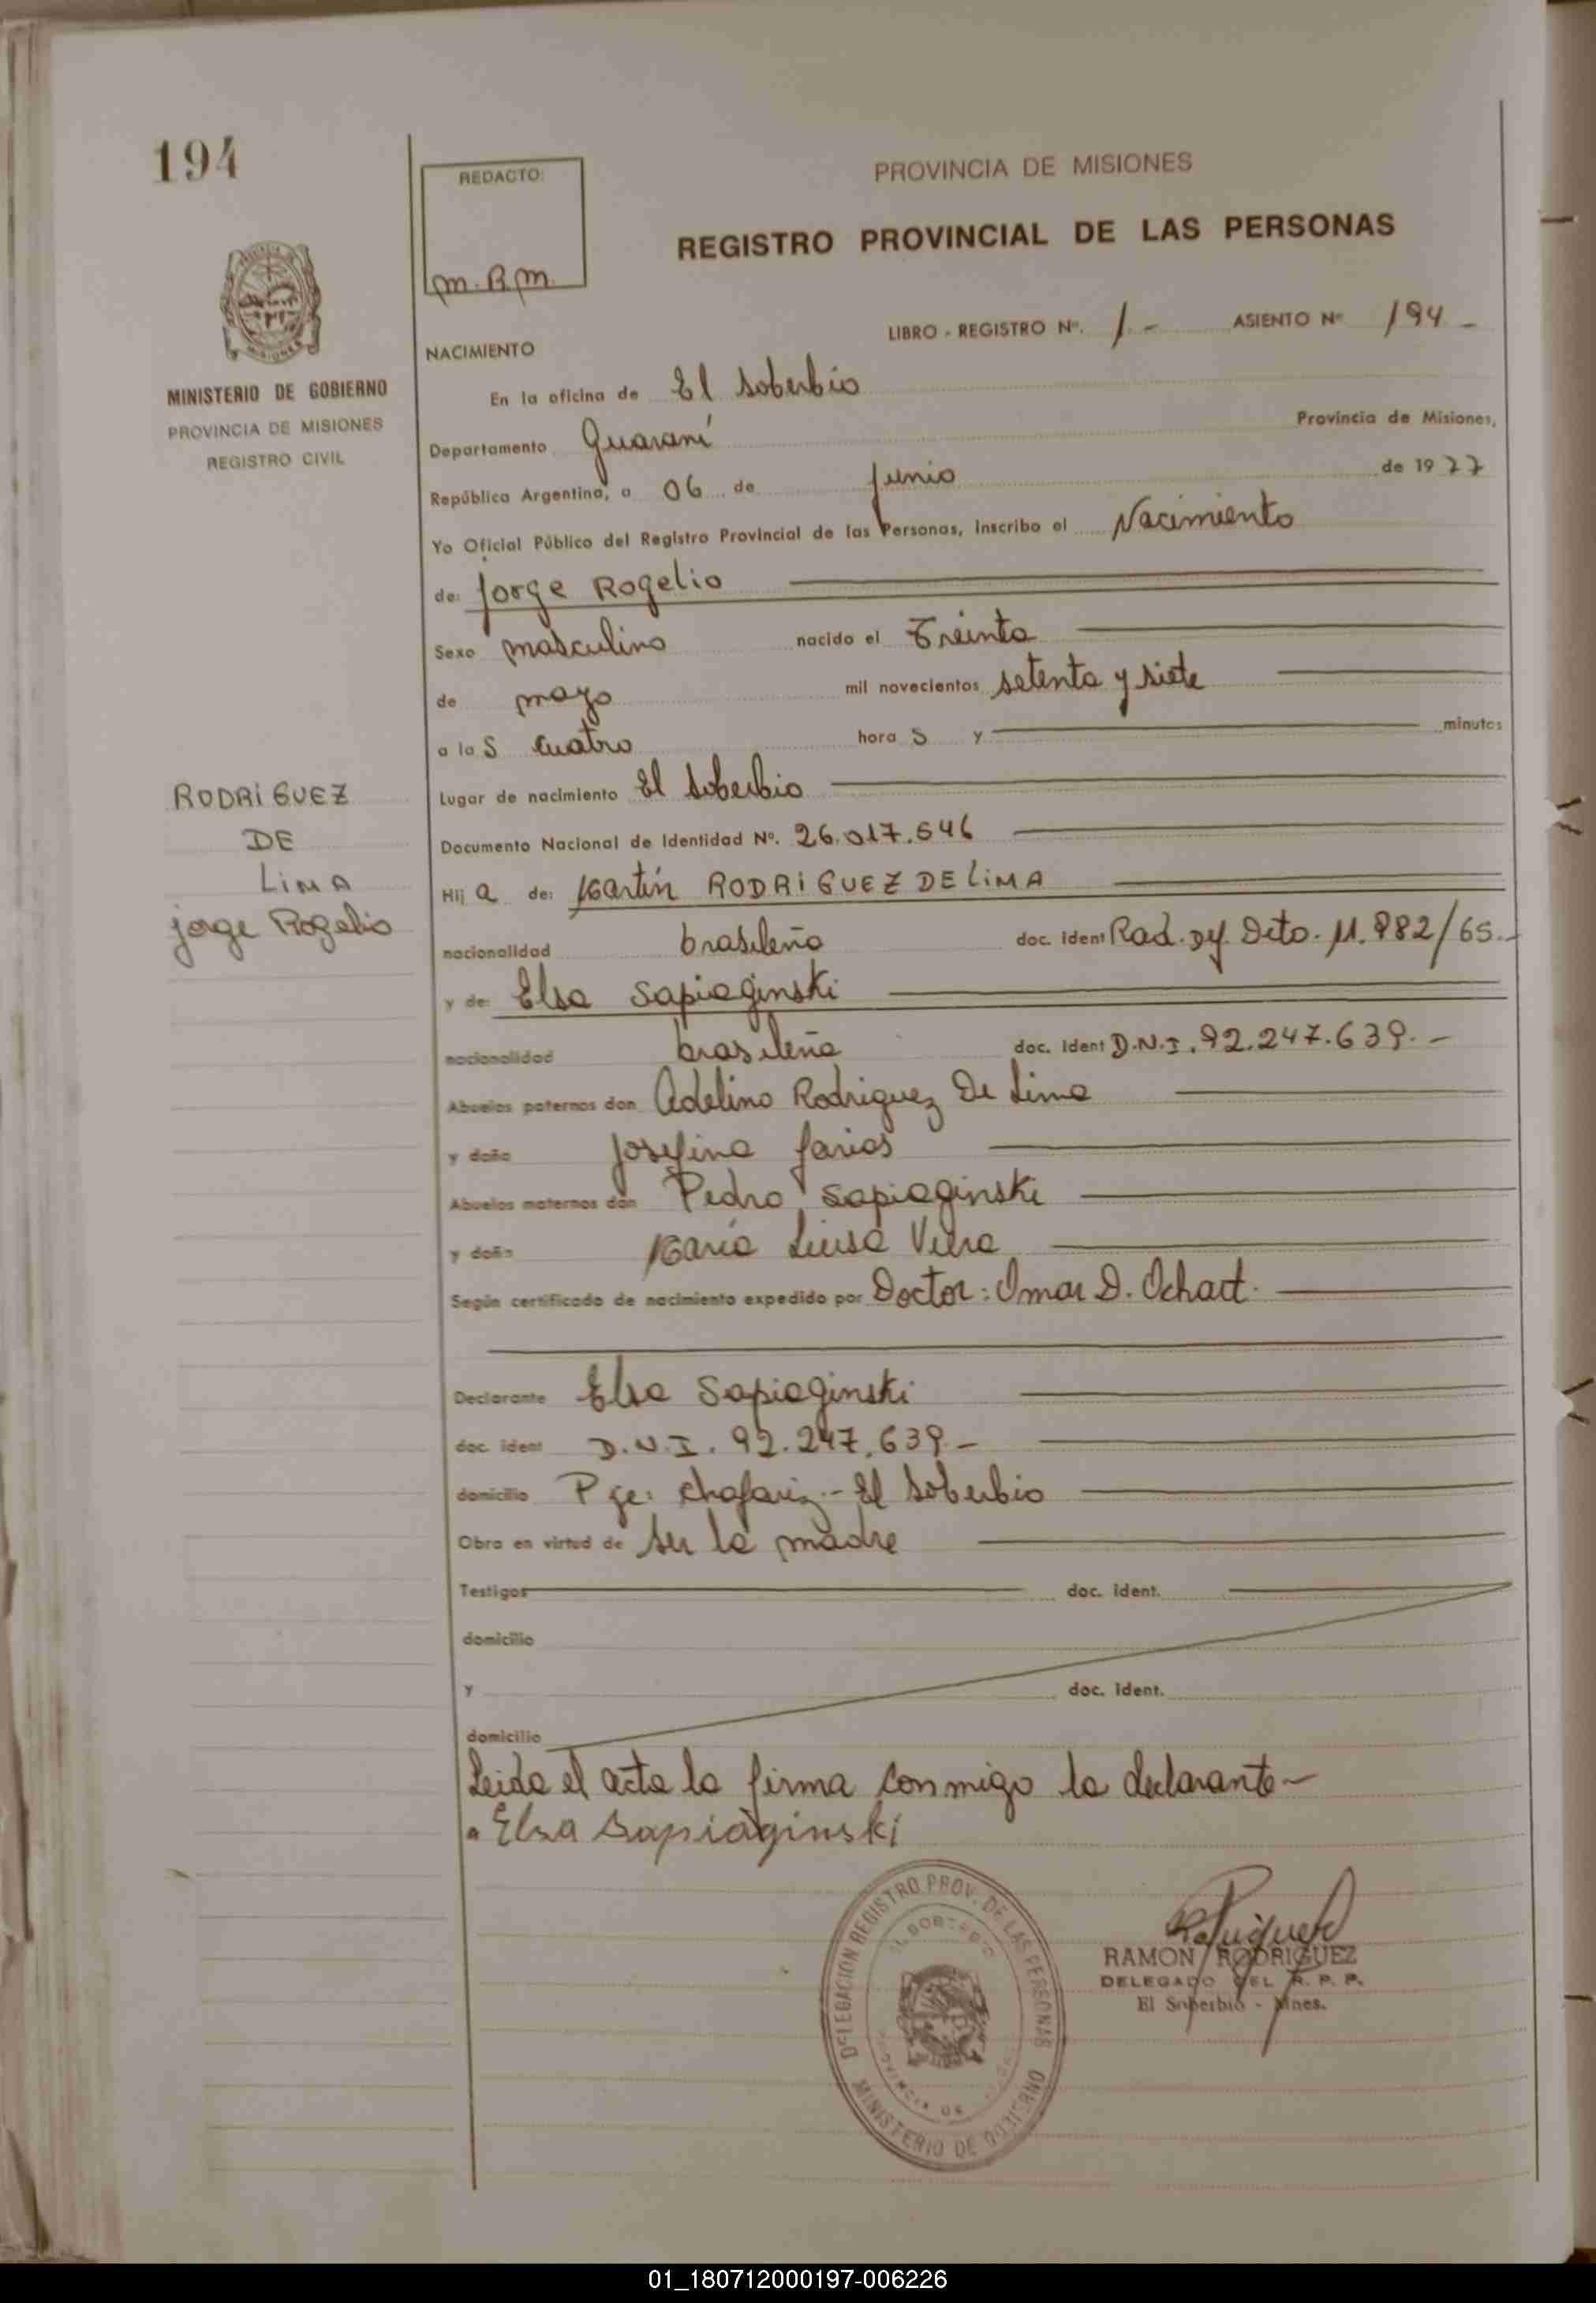 194
REDACTO:
m.R.m.
PROVINCIA DE MISIONES
REGISTRO PROVINCIAL DE LAS PERSONAS
MINISTERIO DE GOBIERNO
PROVINCIA DE MISIONES
REGISTRO CIVIL
LIBRO - REGISTRO Nº. 1.- ASIENTO Nº 194 -
NACIMIENTO
En la oficina de El Soberbio
Departamento Guaraní Provincia de Misiones,
República Argentina, a 06 de Junio de 1977
Yo Oficial Público del Registro Provincial de las Personas, inscribo el Nacimiento
de: Jorge Rogelio
Sexo masculino nacido el Treinta
de mayo mil novecientos setenta y siete
a la S cuatro hora S y minutos
Lugar de nacimiento El Soberbio
Documento Nacional de Identidad Nº. 26.017.546
Hij a de: Martín RODRIGUEZ DE LIMA
nacionalidad brasileño doc. ident Rad. Dto. M. 882/65.-
y de: Elsa Sapiaginski
nacionalidad brasileña doc. ident D.N.I. 92.247.639.-
Abuelos paternos don Adelino Rodriguez De Lima
y doña Josefina farias
Abuelos maternos don Pedro Sapiaginski
y doña Maria Luisa Viera
Según certificado de nacimiento expedido por Doctor: Omar D. Ochart.
Declarante Elsa Sapiaginski
doc. ident D.N.I. 92.247.639.-
domicilio Pje: Chafariz.- El Soberbio
Obra en virtud de ser la madre
Testigos doc. ident.
domicilio
y doc. ident.
domicilio
Leida el acta la firma conmigo la declarante-
Elsa Sapiaginski
RODRIGUEZ
DE
LIMA
Jorge Rogelio
DELEGACION REGISTRO PROV. DE LAS PERSONAS
EL SOBERBIO
PROVINCIA DE
MINISTERIO DE GOBIERNO
RAMON RODRIGUEZ
DELEGADO DEL R. P. P.
El Soberbio - Mnes.
01_180712000197-006226